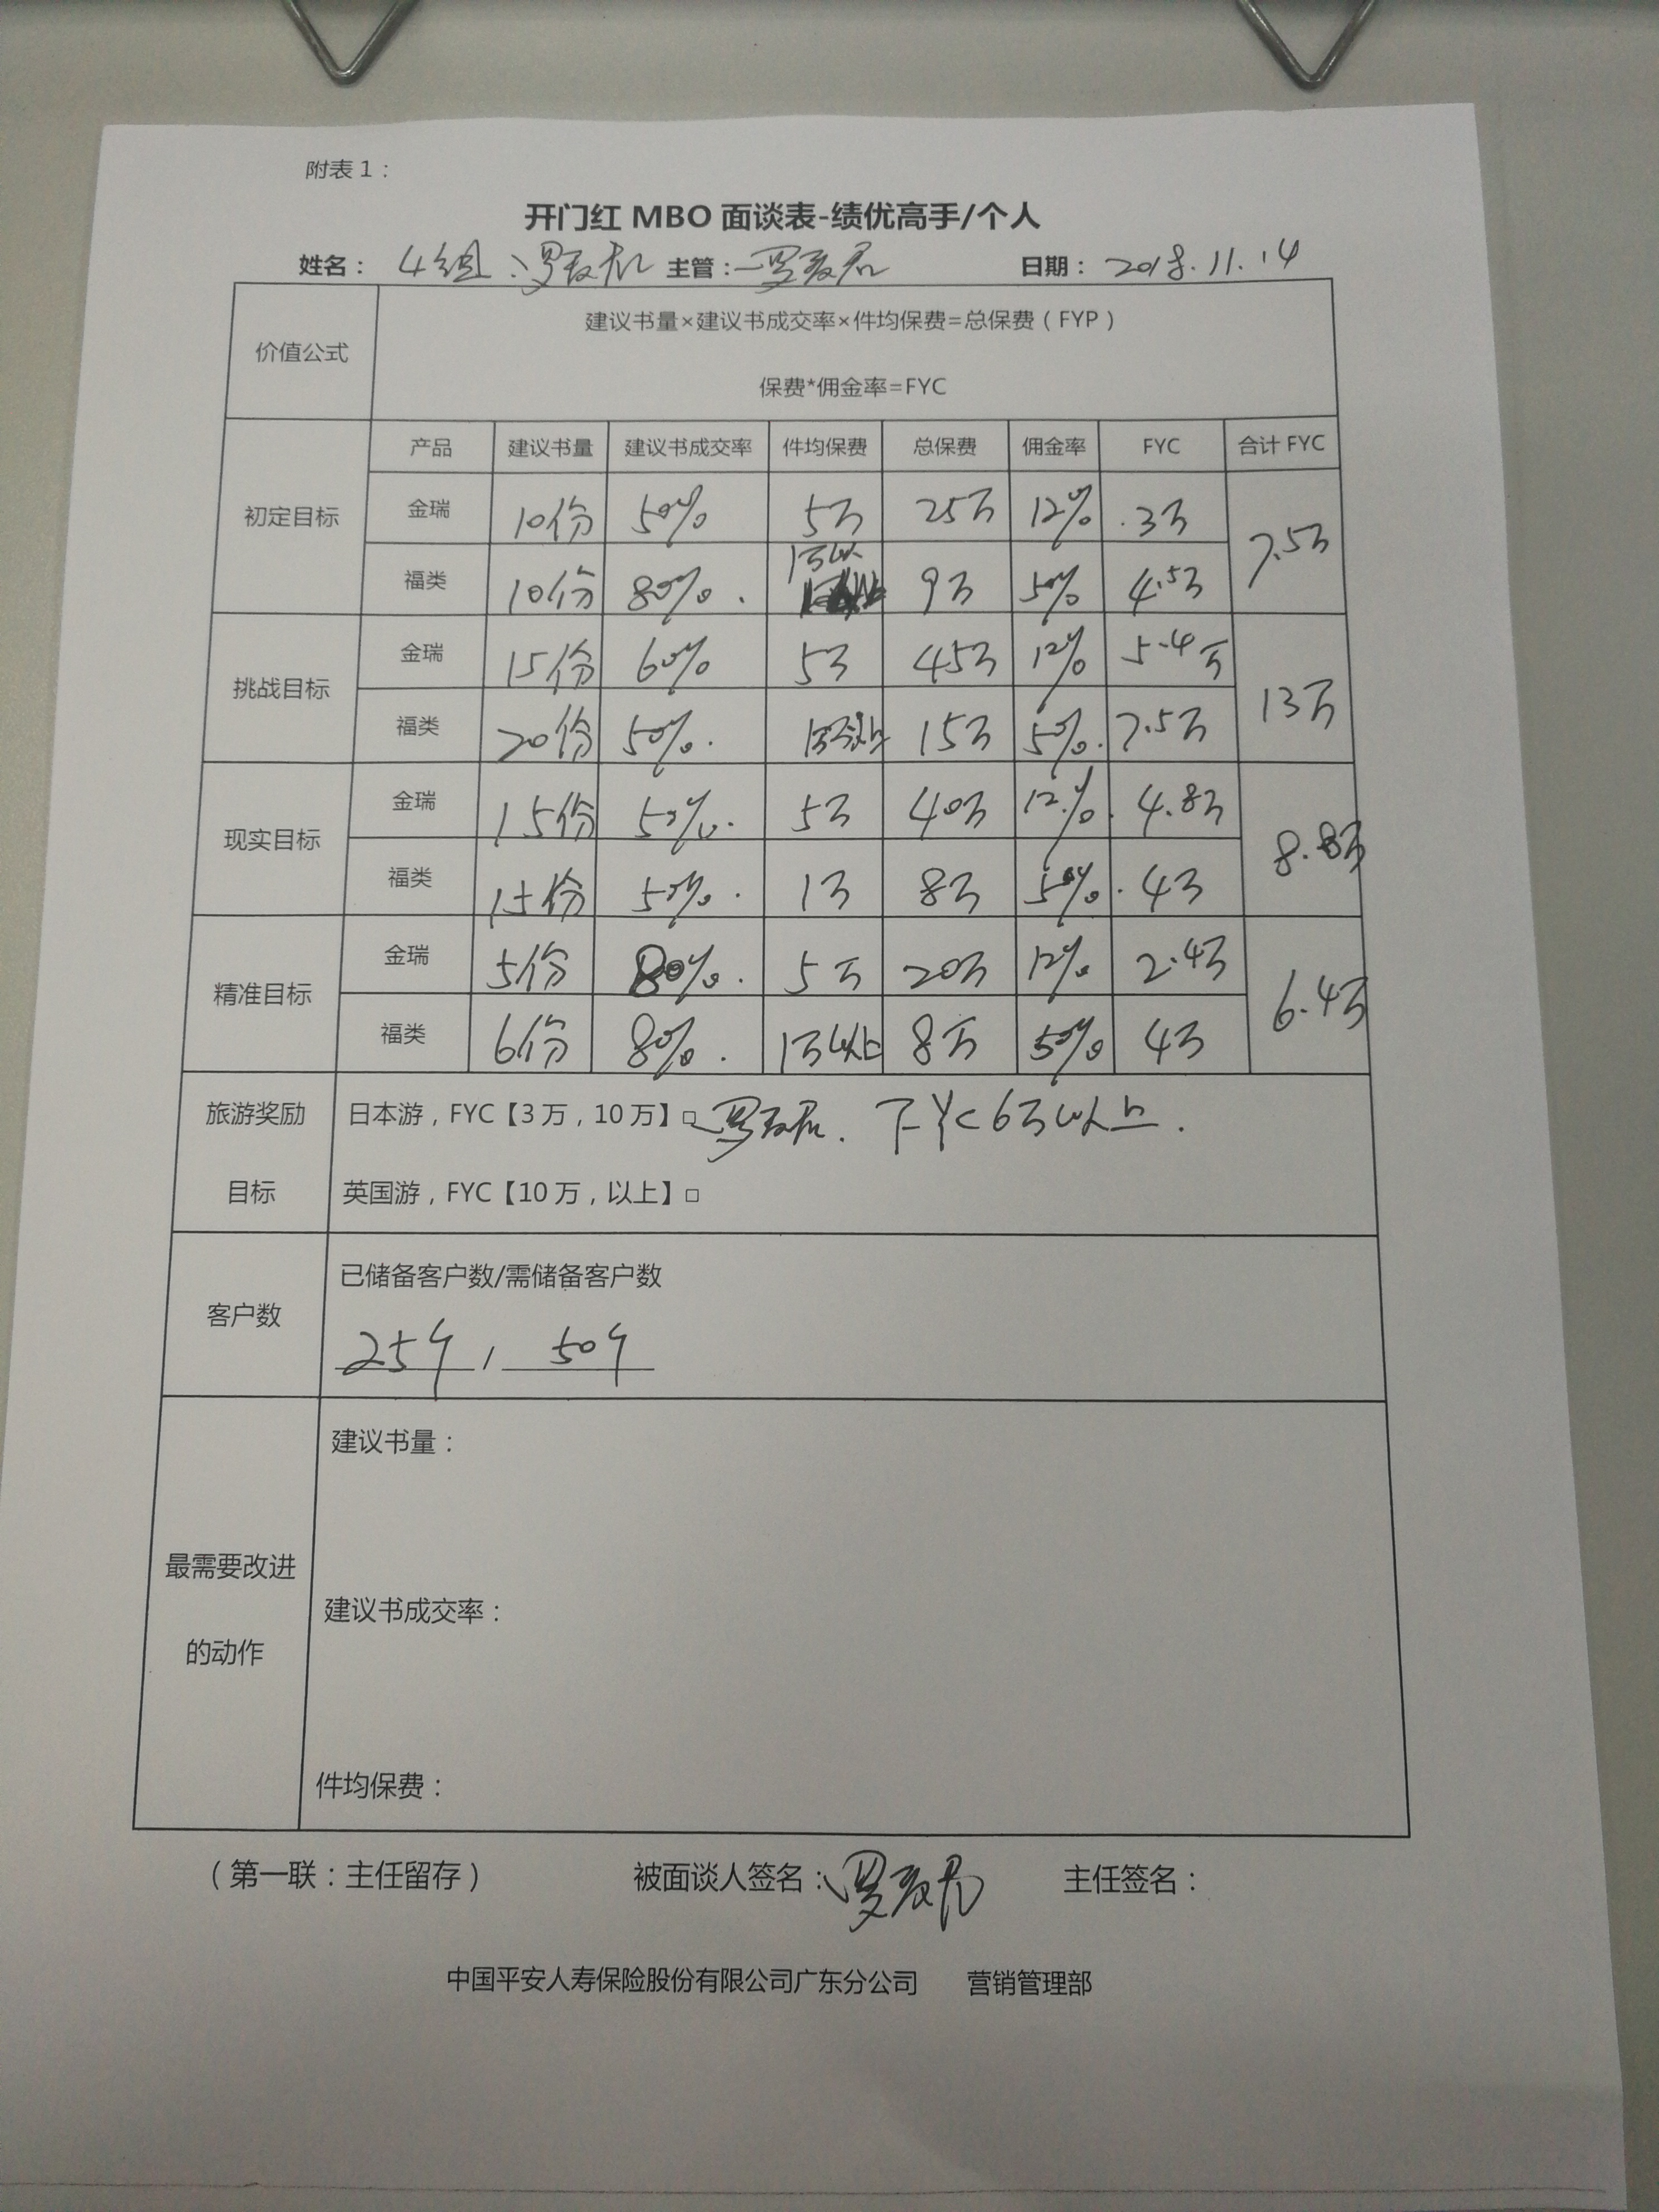 附表1：
开门红 MBO 面谈表-绩优高手/个人
姓名： 4组 主管： 日期： 2018.11.14
价值公式
建议书量×建议书成交率×件均保费=总保费（FYP）
保费*佣金率=FYC
产品 建议书量 建议书成交率 件均保费 总保费 佣金率 FYC 合计 FYC
初定目标
金瑞 10份 50% 5万 25万 12% 3万
7.5万
福类 10份 80% 1万以 9万 50% 4.5万
挑战目标
金瑞 15份 60% 5万 45万 12% 5.4万
13万
福类 20份 50% 1万以上 15万 50% 7.5万
现实目标
金瑞 15份 50% 5万 40万 12% 4.8万
8.8万
福类 15份 50% 1万 8万 50% 4万
精准目标
金瑞 5份 80% 5万 20万 12% 2.4万
6.4万
福类 6份 80% 1万以上 8万 50% 4万
旅游奖励
目标
日本游，FYC【3万，10万】□ FYC 6万以上.
英国游，FYC【10万，以上】□
客户数
已储备客户数/需储备客户数
25个 / 50个
最需要改进
的动作
建议书量：
建议书成交率：
件均保费：
（第一联：主任留存） 被面谈人签名： 主任签名：
中国平安人寿保险股份有限公司广东分公司 营销管理部